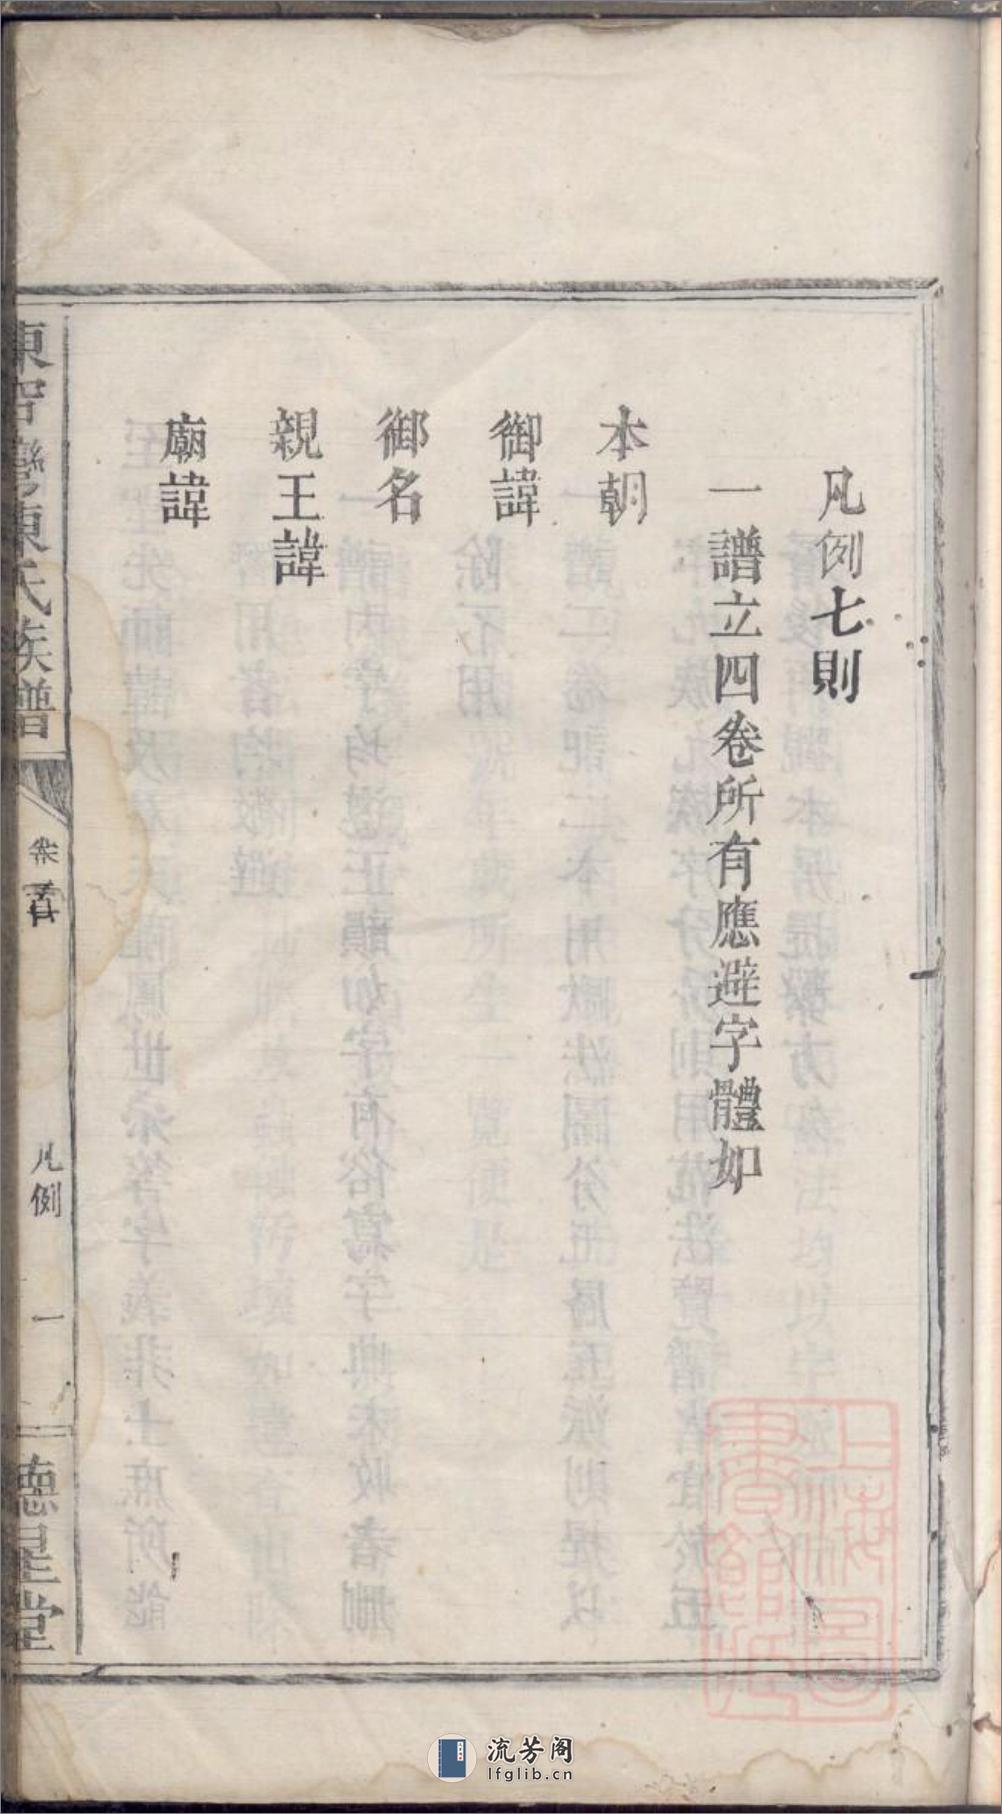 凡例七則
一譜立四卷所有應避字體如
本朝
御諱
御名
親王諱
廟諱
陳氏族譜
卷首
凡例
一
德星堂
上海圖書館藏
流芳阁
lfglib.cn